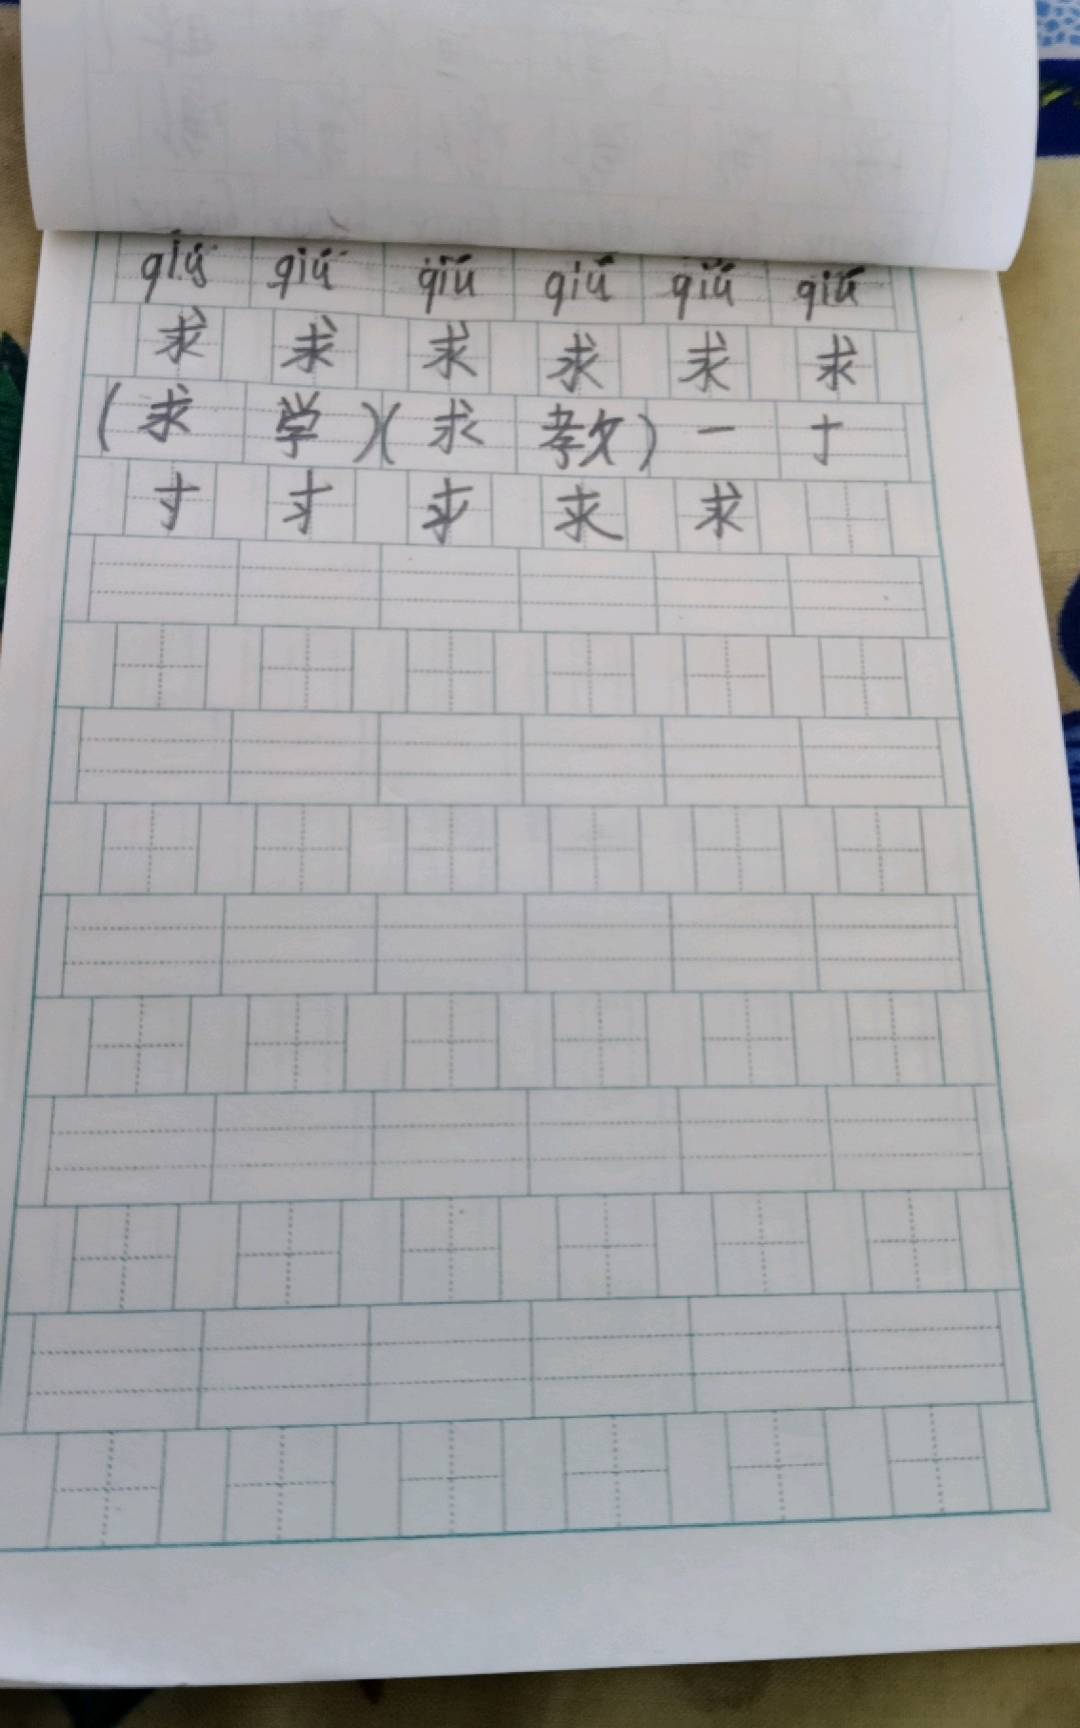 qiú qiú qiú qiú qiú qiú
求 求 求 求 求 求
(求 学)(求 教) 一 十
寸 才 求 求 求